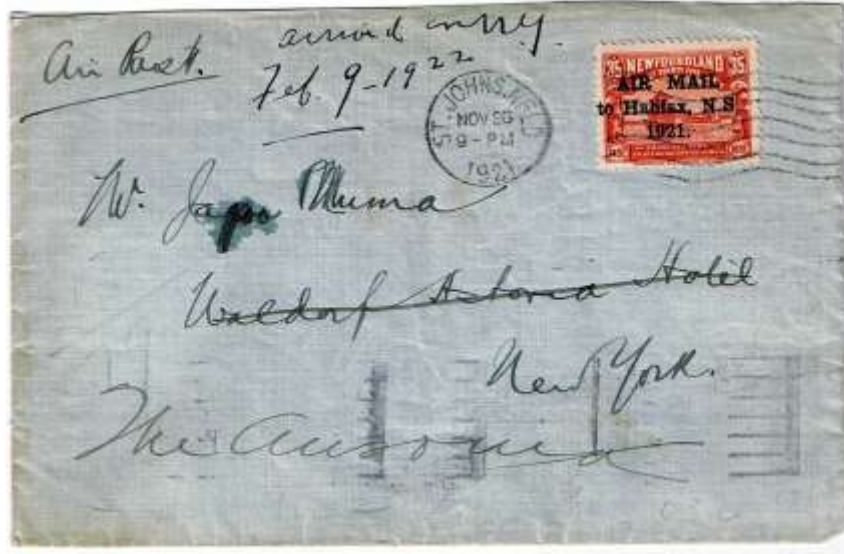 Air Post.
arrived in N.Y.
Feb. 9 - 1922
ST. JOHN'S, NFLD
NOV
9 - PM
1921
35 NEWFOUNDLAND 35
AIR MAIL
to Halifax, N.S
1921.
Mr.
Waldorf Astoria Hotel
New York.
The Ansonia